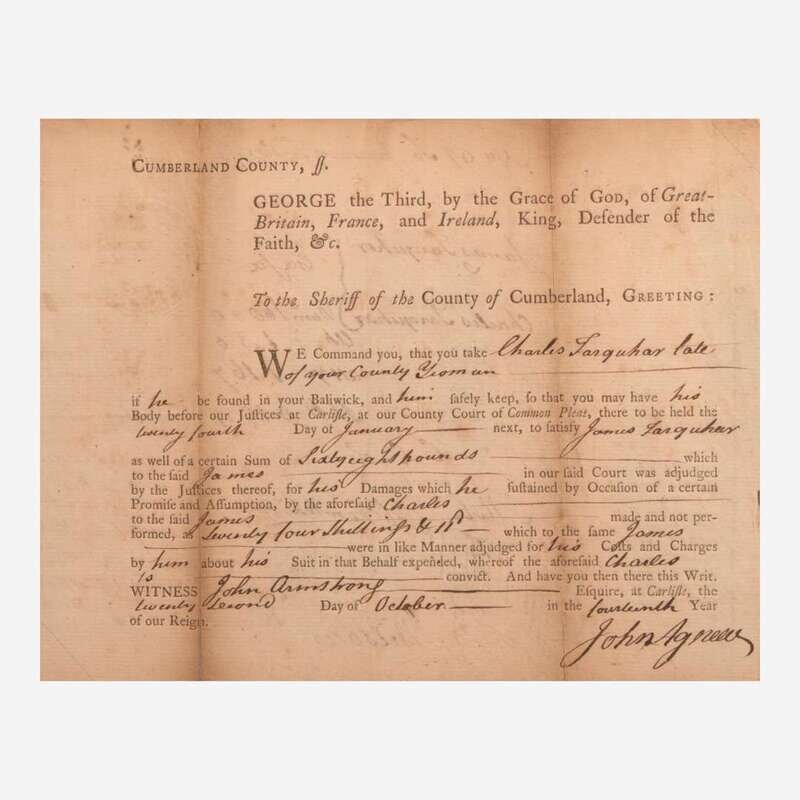 CUMBERLAND COUNTY, ſſ.
GEORGE the Third, by the Grace of GOD, of Great-
Britain, France, and Ireland, King, Defender of the
Faith, &c.
To the Sheriff of the County of Cumberland, GREETING:
WE Command you, that you take Charles Farquhar late
of your County Yeoman
if he be found in your Baliwick, and him ſafely keep, ſo that you may have his
Body before our Juſtices at Carliſle, at our County Court of Common Pleas, there to be held the
twenty fourth Day of January next, to ſatisfy James Farquhar
as well of a certain Sum of Sixty eight pounds which
to the ſaid James in our ſaid Court was adjudged
by the Juſtices thereof, for his Damages which he ſuſtained by Occaſion of a certain
Promiſe and Aſſumption, by the aforeſaid Charles
to the ſaid James made and not per-
formed, as Twenty four Shillings & 1d which to the ſame James
were in like Manner adjudged for his Coſts and Charges
by him about his Suit in that Behalf expended, whereof the aforeſaid Charles
is convict. And have you then there this Writ.
WITNESS John Armstrong Eſquire, at Carliſle, the
twenty second Day of October in the fourteenth Year
of our Reign.
John Agnew